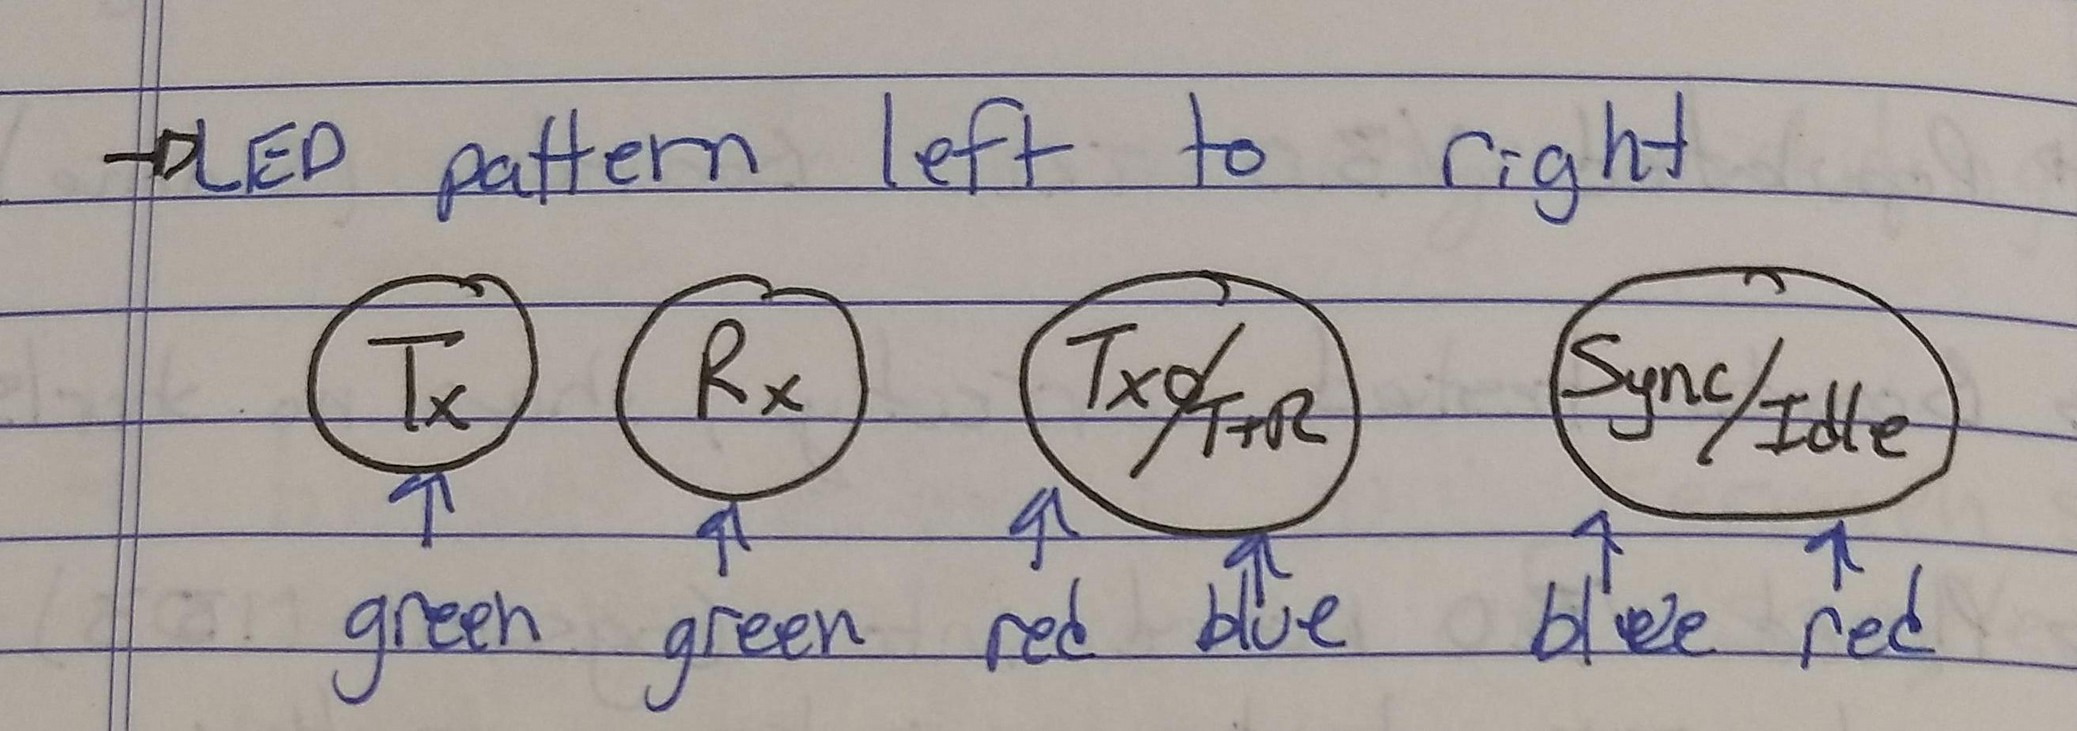 →LED pattern left to right
Tx Rx Txd/T+R Sync/Idle
↑ ↑ ↑ ↑ ↑ ↑
green green red blue blue red